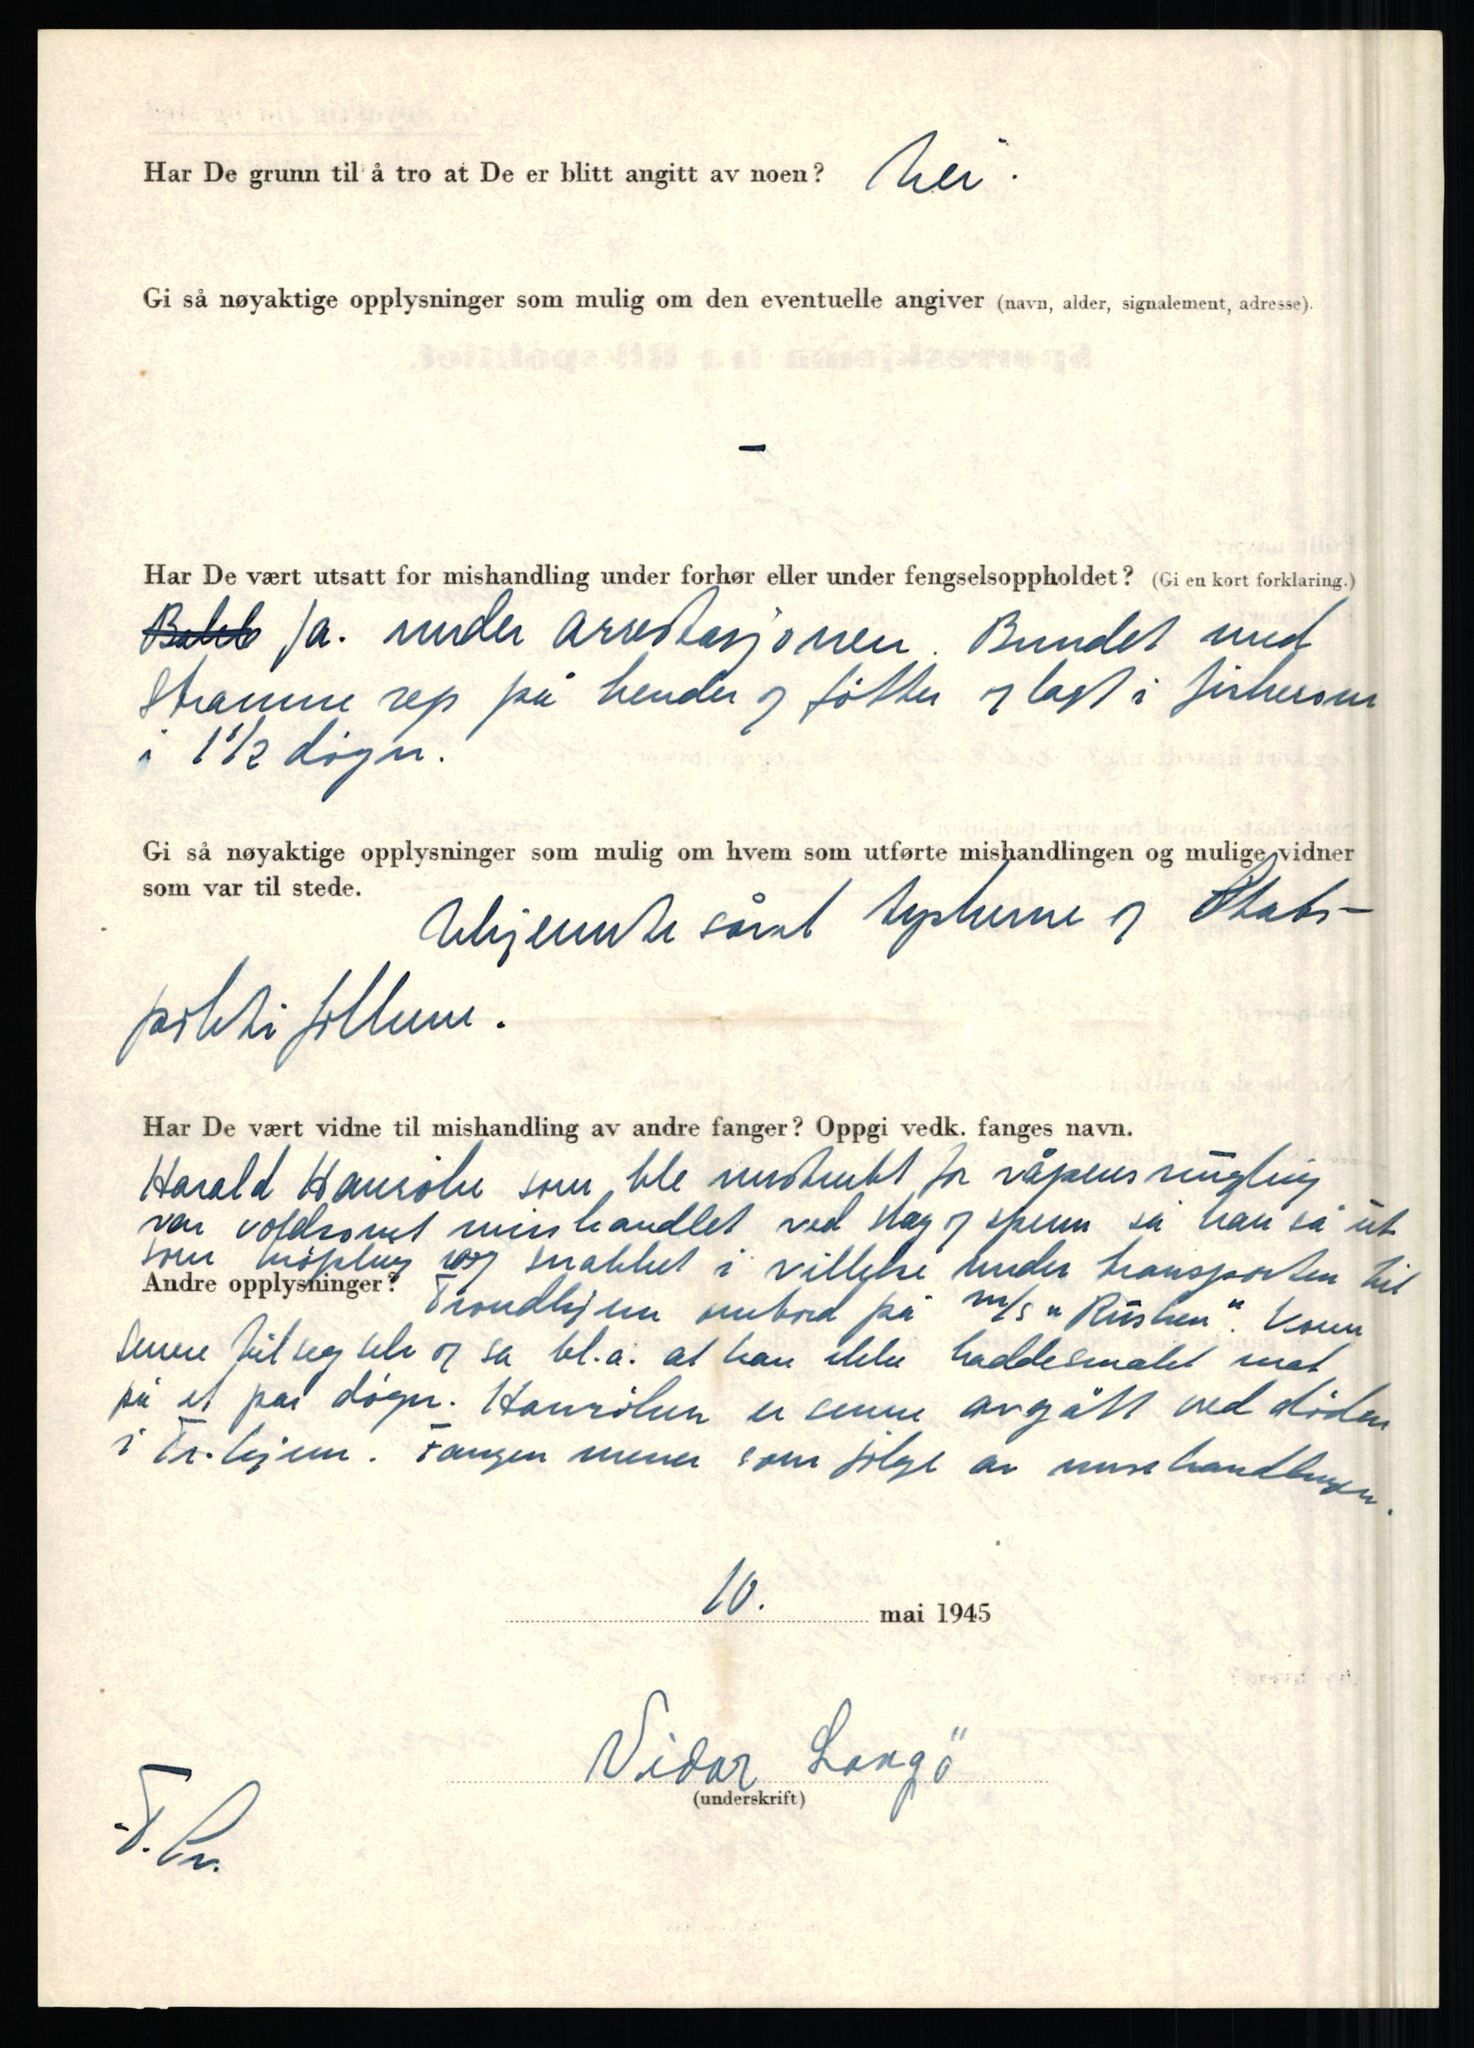 Har De grunn til å tro at De er blitt angitt av noen? Nei.
Gi så nøyaktige opplysninger som mulig om den eventuelle angiver (navn, alder, signalement, adresse).
–
Har De vært utsatt for mishandling under forhør eller under fengselsoppholdet? (Gi en kort forklaring.)
Ja. under arrestasjonen. Bundet med
stramme rep på hender og føtter og lagt i
i 1 1/2 døgn.
Gi så nøyaktige opplysninger som mulig om hvem som utførte mishandlingen og mulige vidner
som var til stede.
Ukjennte såvel tyskerne og Stats-
politifolkene.
Har De vært vidne til mishandling av andre fanger? Oppgi vedk. fanges navn.
Harald som ble mistenkt for våpensmugling
var voldsomt mishandlet ved slag og spenn så han så ut
som og snakket i villelse under transporten til
Andre opplysninger?
Trondhjem ombord på m/s "Rüsken". Kom
senere til seg selv og sa bl.a. at han ikke hadde smakt mat
på et par døgn. er senere avgått ved døden
i Tr.hjem. Fangen mener som følge av mishandlingen.
10. mai 1945
Vidar Langö
(underskrift)